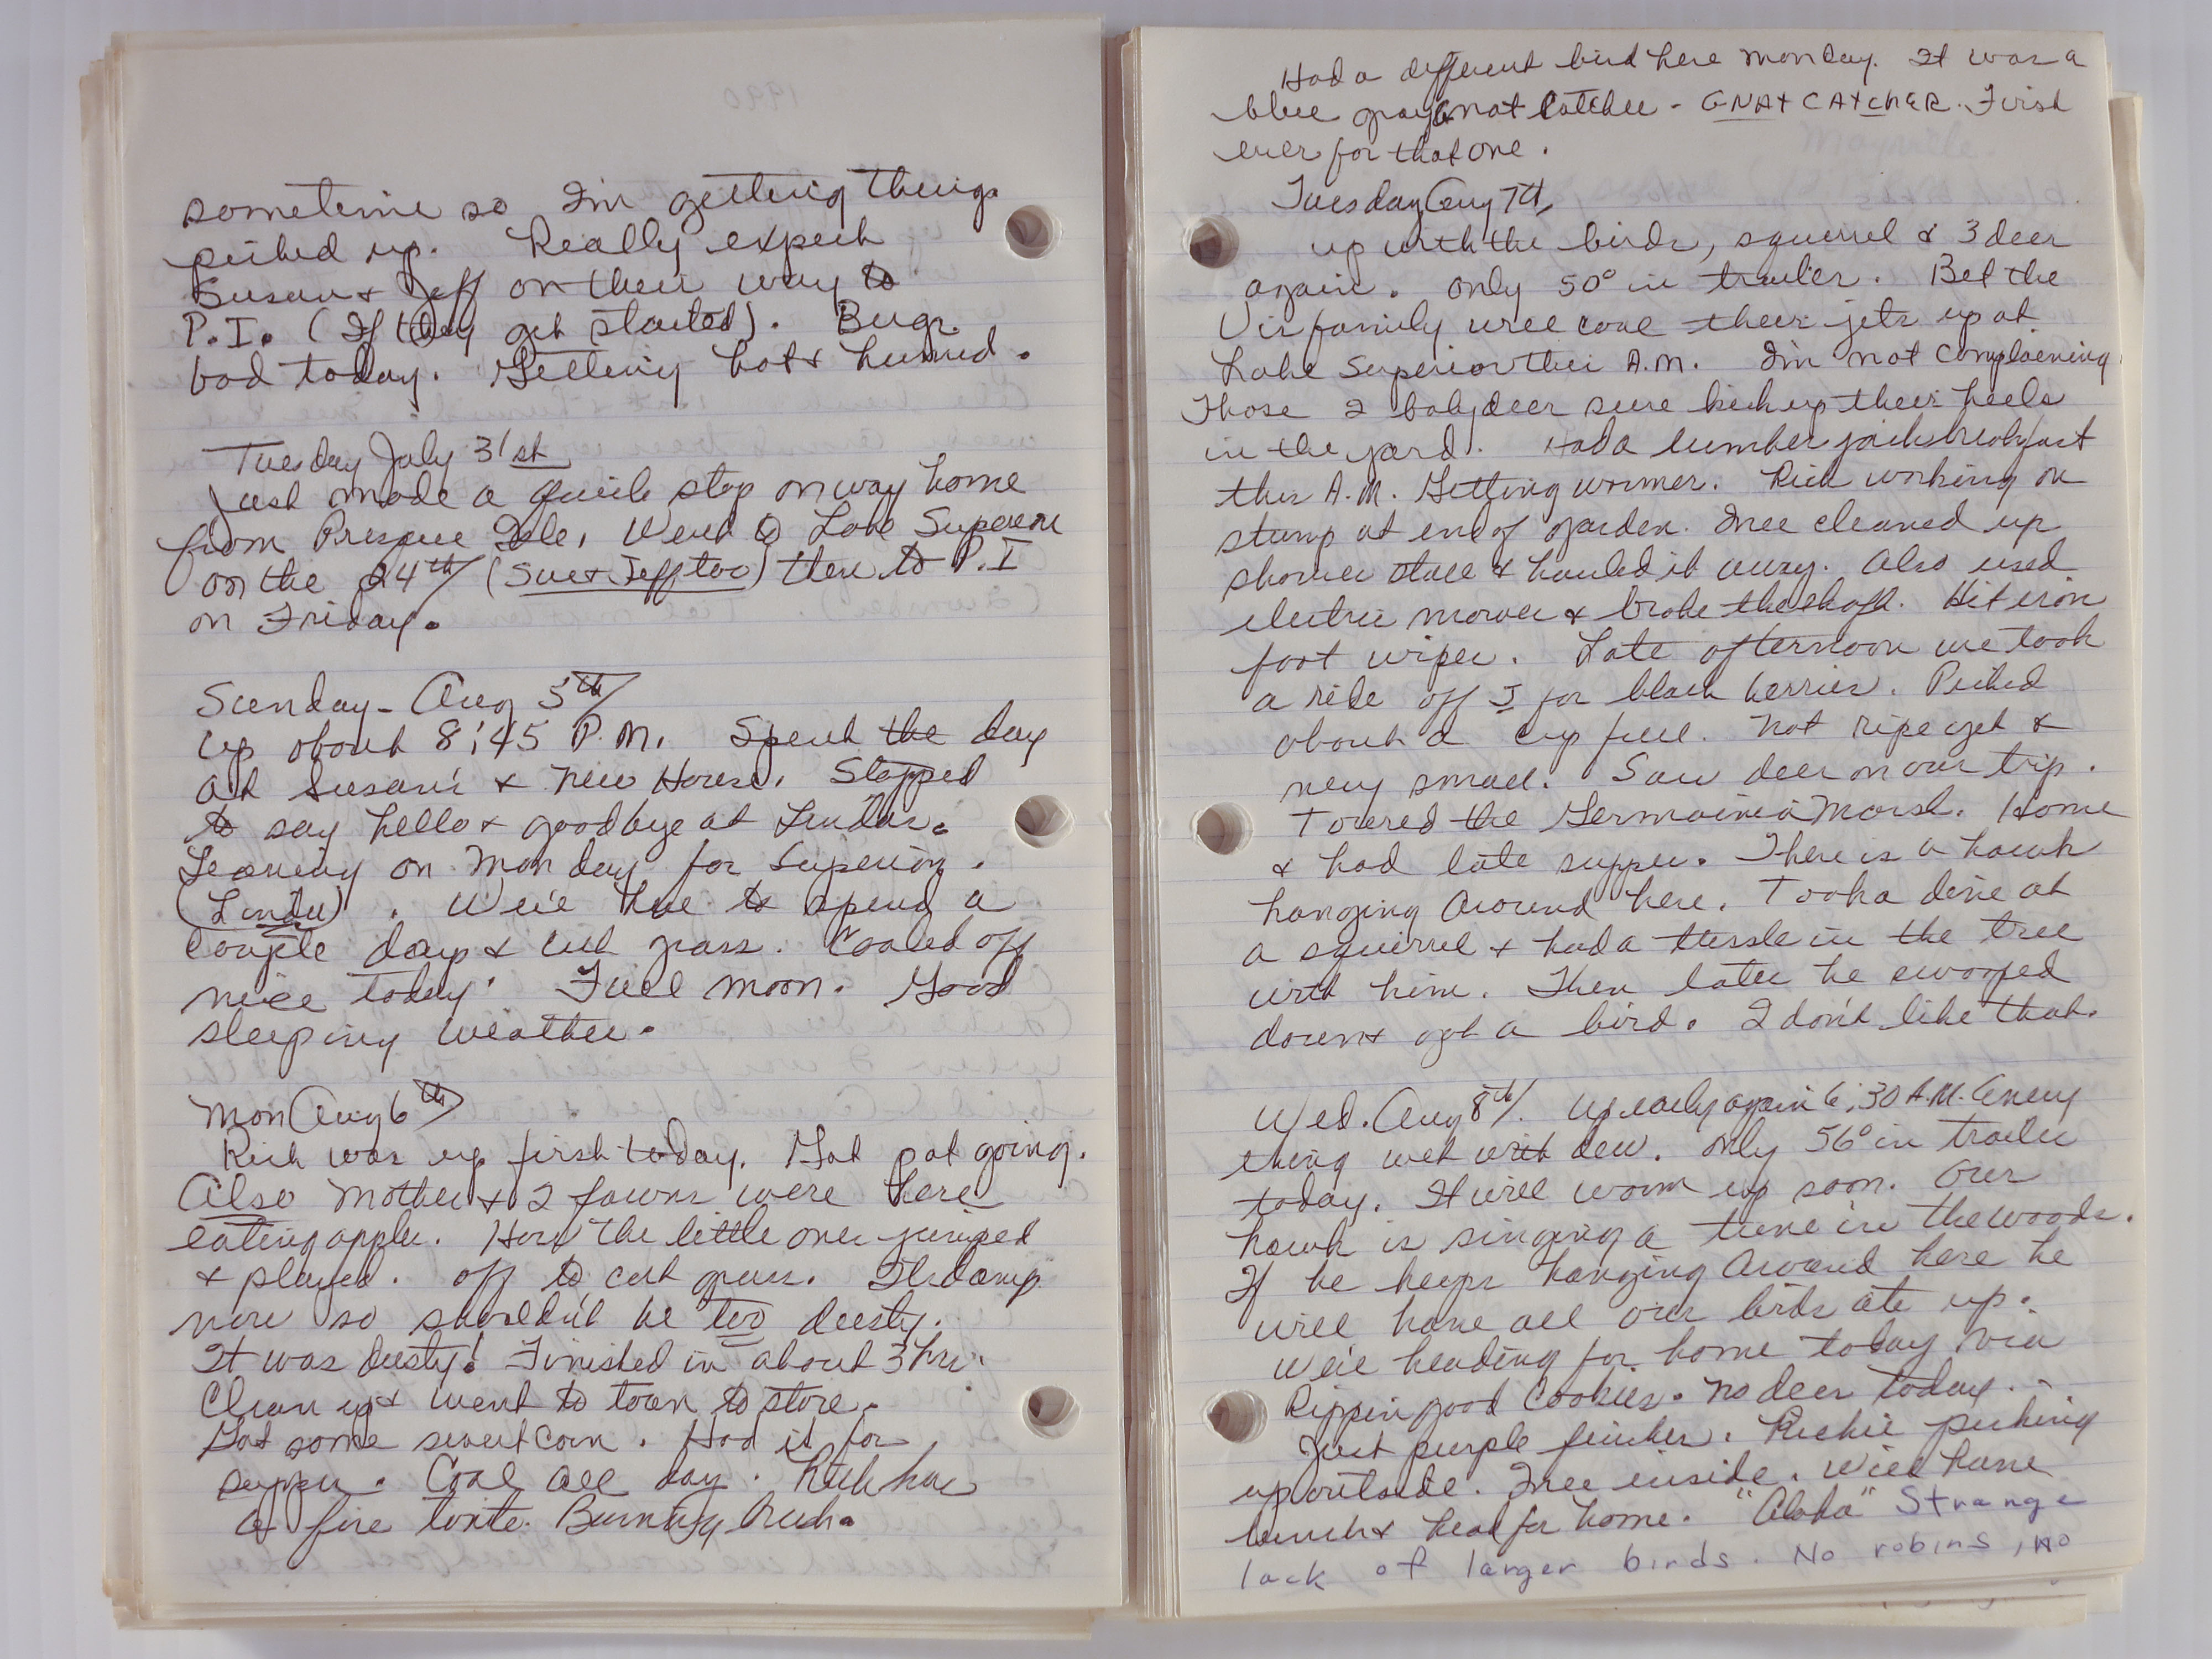 sometime so I'm getting things
picked up. Really expect
Susan & Jeff on their way to
P.I. (If they get started). Bugs
bad today. Getting hot & humid.
Tuesday July 31st
Just made a quick stop on way home
from Presque Isle. Went to Lake Superior
on the 24th (Sue & Jeff too) then to P.I
on Friday.
Sunday - Aug 5th
Up about 8:45 P.M. Spent the day
at Susan's & New House. Stopped
to say hello & goodbye at Lindas.
Leaving on Monday for Superior.
(Linda). We're here to spend a
couple days & cut grass. Cooled off
nice today. Full moon. Good
sleeping weather.
Mon Aug 6th
Rich was up first today. Got pot going.
Also Mother & 2 fawns were here
eating apples. How the little ones jumped
& played. off to cut grass. It's damp
now so shouldn't be too dusty.
It was dusty! Finished in about 3 hrs.
Clean up & went to town to store.
Got some sweet corn. Had it for
supper. Cool all day. Rich has
a fire tonite. Burning brush.
Had a different bird here Monday. It was a
blue gray Gnat Catcher - GNAT CATCHER. First
ever for that one.
Tuesday Aug 7th
up with the birds, squirrel & 3 deer
again. only 50° in trailer. Bet the
Vis family will cool their jets up at
Lake Superior this A.M. I'm not complaening.
Those 2 baby deer sure kick up their heels
in the yard. Had a lumber jacks breakfast
this A.M. Getting warmer. Rich working on
stump at end of garden. Inee cleaned up
shower stall & hauled it away. Also used
electric mower & broke the shaft. Hit iron
foot wiper. Late afternoon we took
a ride off J for black berries. Picked
about a cup full. Not ripe yet &
very small. Saw deer on our trip.
Towered the Germainia Marsh. Home
& had late supper. There is a hawk
hanging around here. Took a dive at
a squirrel & had a tussle in the tree
with him. Then later he swooped
down & got a bird. I don't like that.
Wed. Aug 8th. Up early again 6:30 A.M. Every
thing wet with dew. only 56° in trailer
today. It will warm up soon. Our
hawk is singing a tune in the woods.
If he keeps hanging around here he
will have all our birds ate up.
We're heading for home today via
Rippin good Cookies. No deer today.
Just purple finches. Richie picking
up outside. Inee inside. Will have
lunch & head for home. "Aloha" Strange
lack of larger birds. No robins, no